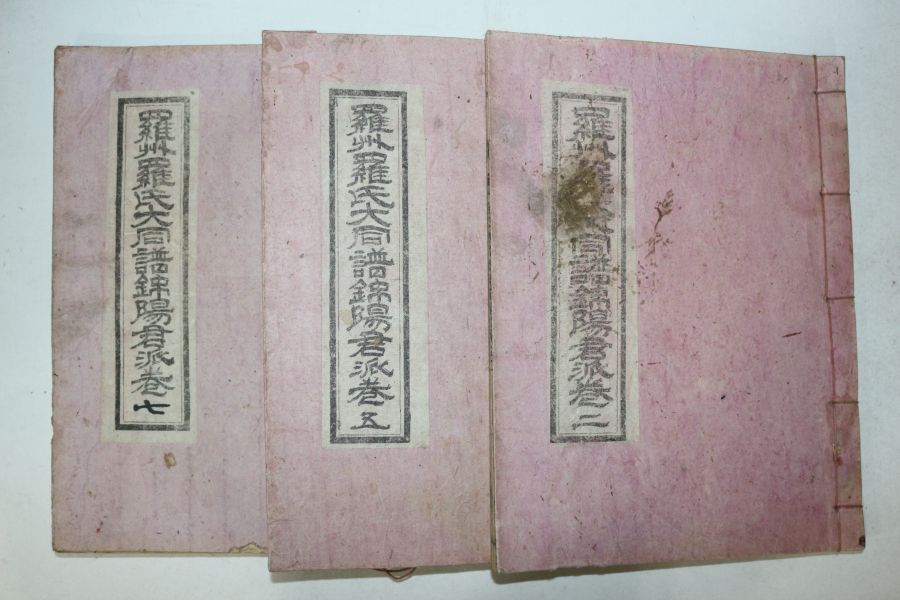 羅州羅氏大同譜錦陽君派卷七
羅州羅氏大同譜錦陽君派卷五
羅州羅氏大同譜錦陽君派卷二